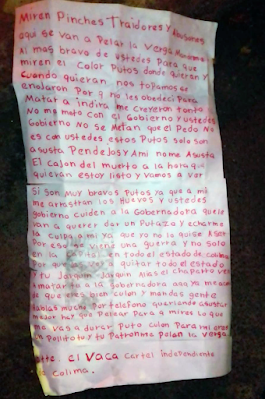 Miren Pinches Traidores y
aqui se van a Pelar la Verga
Al mas bravo de ustedes Para que
miren el Color Putos donde quieran y
Cuando quieran nos topamos se
enojaron Por q no les obedeci Para
Matar a indira me Creyeron tonto
No me meto con el Gobierno y ustedes
Gobierno No se Metan que el Pedo No
es con ustedes estos Putos solo son
asusta Pendejos y Ami no me Asusta
El Cajon del muerto a la hora que
quieran estoy listo y vamos a ver
Si son Muy bravos Putos ya que a mi
me arrastran los Huevos y ustedes
gobierno cuiden a la Gobernadora que le
van a querer dar un Putazo y echarme
la Culpa a mi ya que no la quise A ser
Por eso se viene una guerra y no solo
en la Capital en todo el estado de Colima
a quitar todo el estado
y tu Joaquin Alias el chapcito ve
a matar a la gobernadora
de que eres bien culon y mandas gente
hablas mucho Por telefono queriendo asustar
mejor hay que Pelear Para q miren lo que
vas a durar Puto culon Para mi eres
un Pollito y tu Patron me Pelan la verga
Atte. el Vaca Cartel independiente
de Colima.